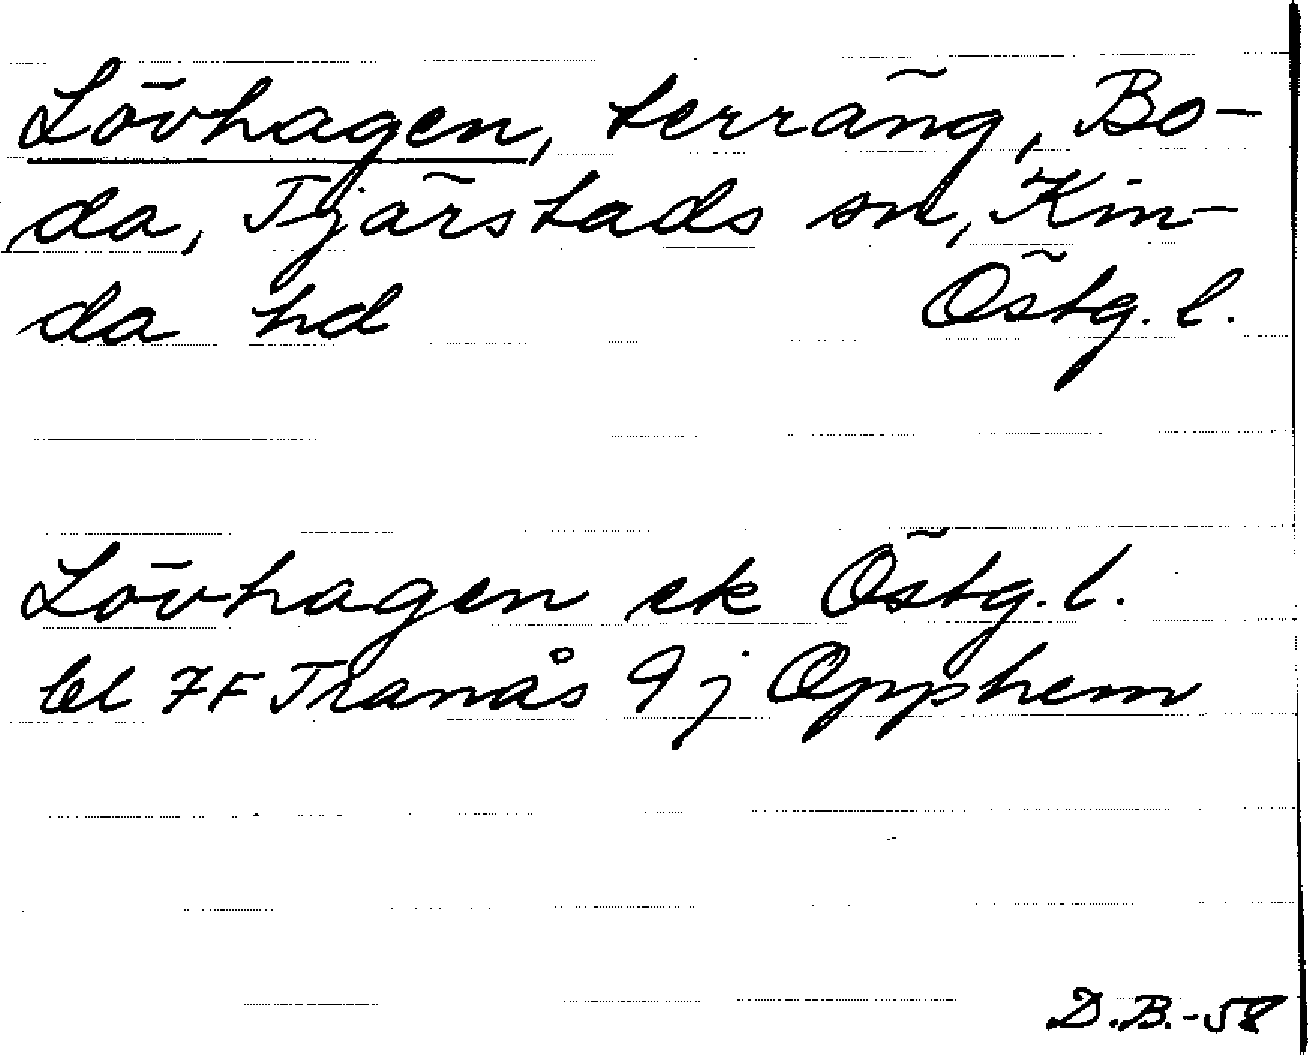 Lövhagen, terräng, Bo-
da, Tjärstads sn, Kin-
da hd Östg. l.
Lövhagen ek Östg. l.
bl 7F Tranås 9j Opphem
D.B.-58